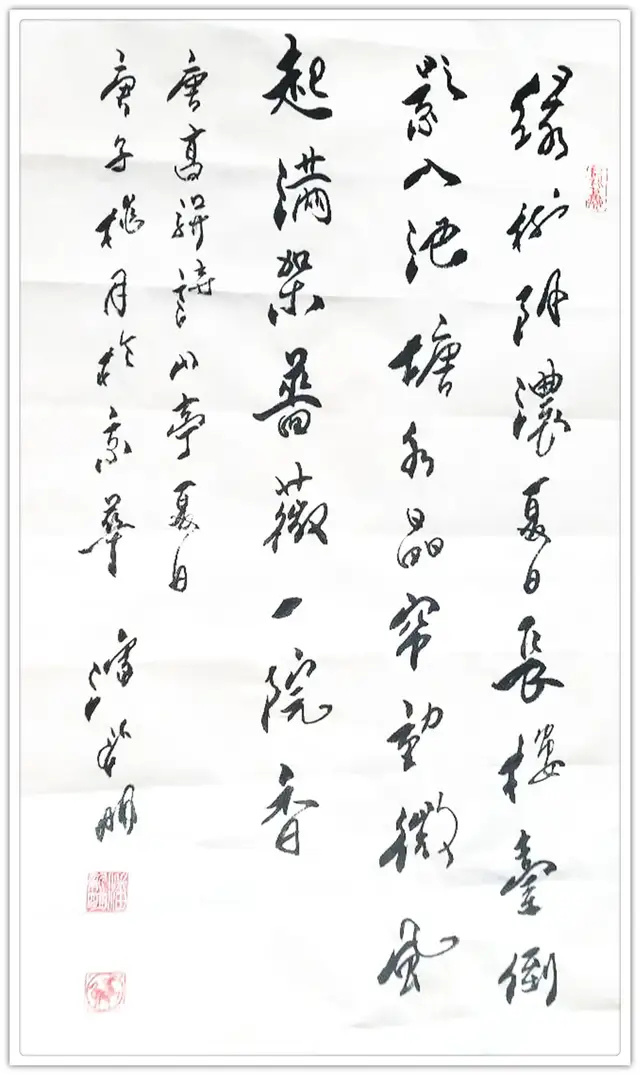 綠樹阴濃夏日長樓臺倒
影入池塘水晶帘動微風
起滿架薔薇一院香
唐高駢詩山亭夏日
庚子月於京華 潘明